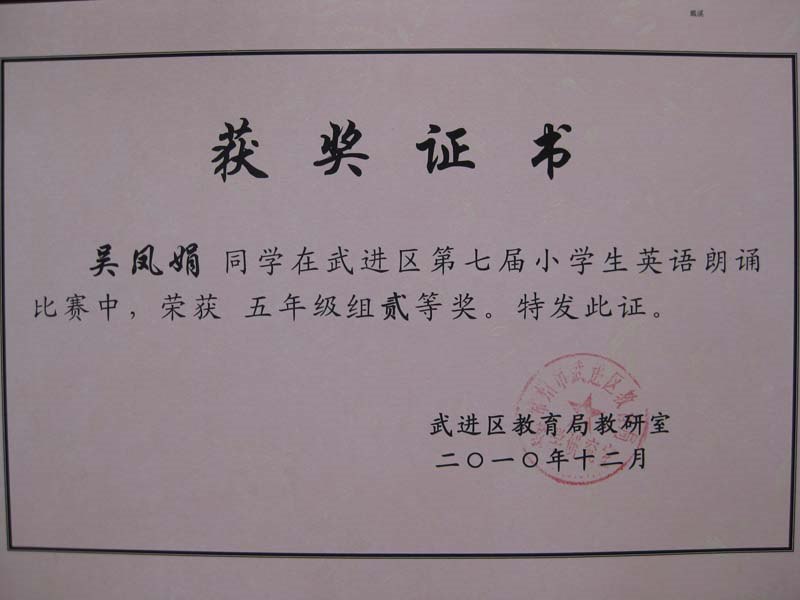 戴溪
获奖证书
吴凤娟 同学在武进区第七届小学生英语朗诵
比赛中，荣获 五年级组贰等奖。特发此证。
武进区教育局教研室
二〇一〇年十二月